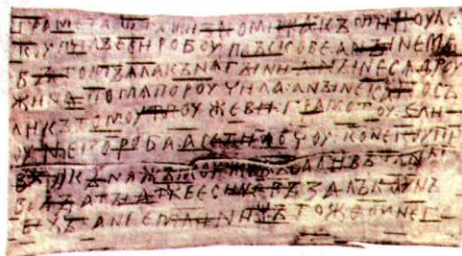 грамота ѡтъ жизномира къ микоуле
коупилъ еси робоу плъскове а ныне мѧ
въ томъ ѧла кънѧгыни а ныне сѧ дроу
жина по мѧ пороучила а ныне ка посъ
ли къ томоу моужеви грамотоу е ли
оу него роба а се ти хочоу коне коупи
въ и кънѧжъ моужъ въсадивъ та на съ
воды а ты атче еси не възалъ коунъ
техъ а не емли ничъто же оу него